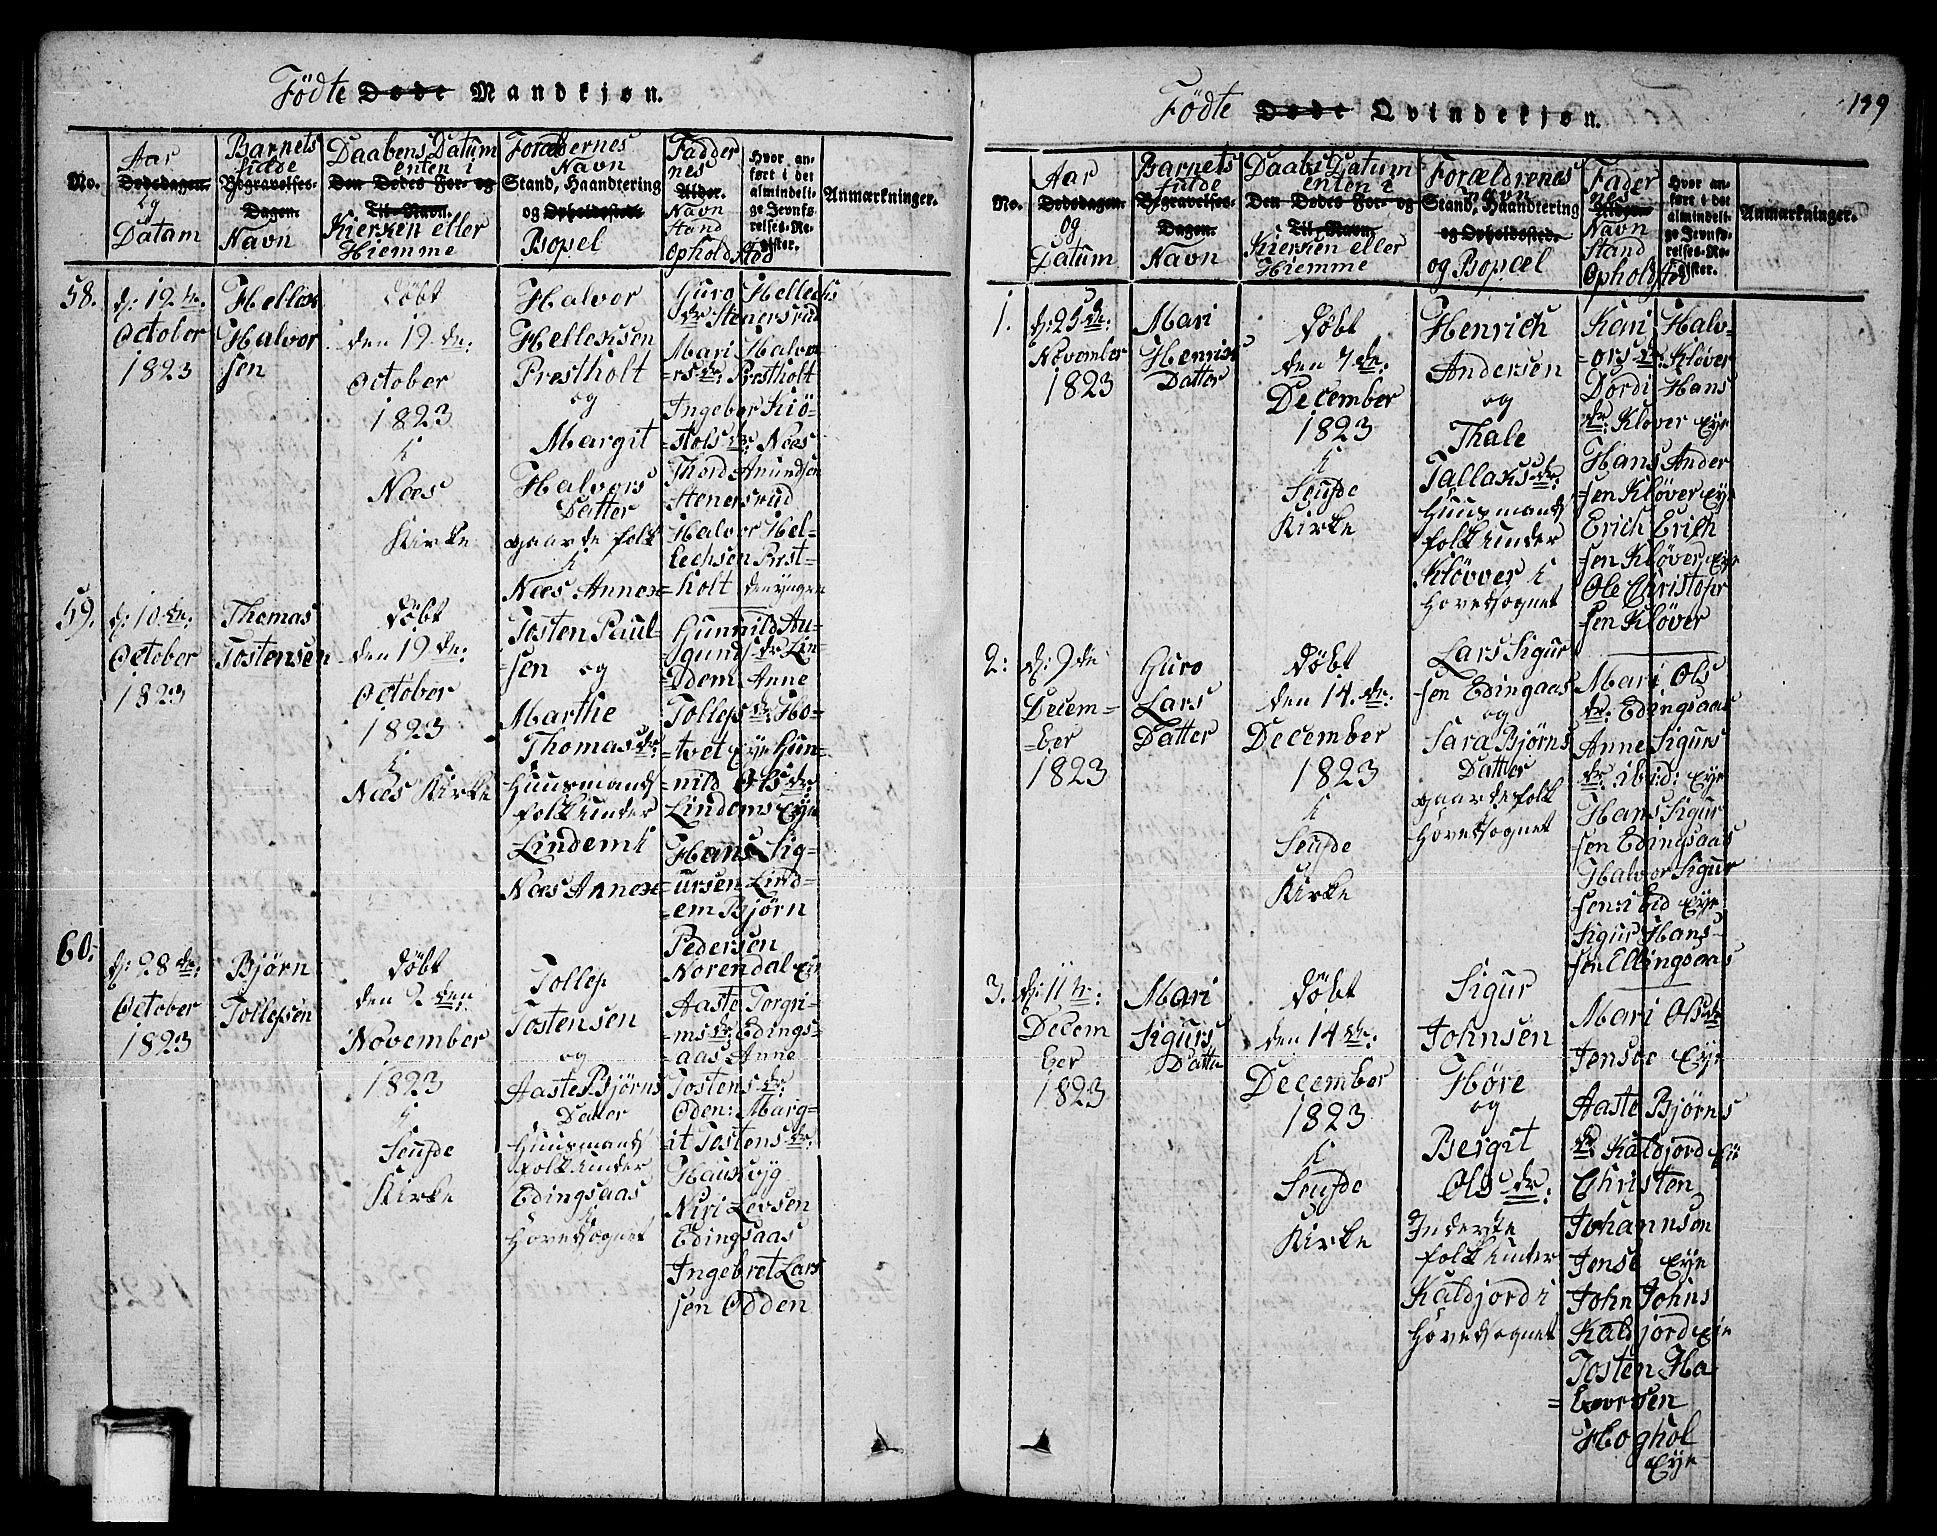 Födte Døde Mandkjøn.
No.
Aar
Dødsdagen.
og
Datum
Barnets
fulde
Begravelses-
Dagen.
Navn
Daabens Datum
enten i
Den Dødes For- og
Til-Navn.
Kierken eller
Hiemme
Forældrernes
Navn
Stand, Haandtering
og Opholdssted.
Bopel
Fadder
nes
Alder.
Navn
Stand
Opholdsted
Hvor an-
ført i det
almindeli-
ge Jevnfø-
relses-Re-
gister.
Anmærkninger.
58.
d: 12te:
October
1823
Hellek
Halvor
sen
Døbt
den 19de:
October
1823
i
Næs
Kirke
Halvor
Helleksen
Prestholt
og
Margit
Halvors
Datter
gaarde folk
i
Næs Annex
Guro Helleks
dr Stenersrud
Mari Halvo
=rs dr: Prestholt
Ingebor Kiö=
=stols dr: Næs
Thord Amundsen
Stenersrud
Halvor Hel=
lechsen Prst=
=holt den yngre
59.
d: 10de:
October
1823
Thomas
Tostensen
Døbt
den 19de:
October
1823
i
Næs Kirke
Tosten Paul=
sen og
Marthe
Thomasdr:
Huusmands
folk under
Lindem i
Næs Annex
Gunnild Au=
=gunds dr Lin=
=dem, Anne
Tolleps dr: Ho=
=tvet Eye Gun=
=nild Olsdr:
Lindems Eye
Hans Sig=
=ursen Lind=
=em Bjørn
Pedersen
Norendal Eie
60.
d: 28de:
October
1823
Bjørn
Tollepsen
Døbt
den 2den:
November
1823
i
Seufde
Kirke
Tollep
Tostensen
og
Aaste Bjørns
Datter
Huusmands
folk under
Edingsaas
i
Hovedsognet
Aaste Torgri=
=ms dr: Edings=
=aas Anne
Tostens dr:
Oden: Marg=
it Tostens dr:
Niri Levsen
Edingsaas
Ingebret Lars
sen Odden
199
Fødte Døde Qvindekjøn.
No.
Aar
Dødsdagen.
og
Datum
Barnets
fulde
Begravelses-
Dagen.
Navn
Daabs Datum
enten i
Den Dødes For- og
Til-Navn.
Kierken eller
Hiemme
Forældrenes
Navn
Stand, Haandtering
og Opholdssted.
og Bopæl
Fader
nes
Alder
Navn
Stand
Opholdsted
Hvor an-
ført i det
almindeli-
ge Jevnfø-
relses-Re-
gister.
Anmærkninger.
1.
d: 25de:
November
1823
Mari
Henrics
Datter
Døbt
den 7de:
December
1823
i
Seufde
Kirke
Henrich
Andersen
og
Thale
Tallaksdr:
Huusmands
folk under
Kløvver i
Hovedsognet
Kari Halv=
=ors dr: Kløver
Dordi Hans
dr: Kløver Eye
Hans Ander
=sen Kløver Eye
Erich Erich
sen Kløver, Eye
Ole Christofer
sen Kløver
2:
d: 9de
Decem=
=ber
1823
Guro
Lars
Datter
Døbt
den 14.de:
December
1823
i
Seufde
Kirke
Lars Sigur
sen Edingaas
og
Sara Bjørns
Datter
gaardefolk
Hovedsognet
Mari Ols
dr: Edingsaas
Anne Sigurs
dr: ibid: Eye
Hans Sigur
sen Edingsaas
Halvor Sigur
sen: ibid Eye
Sigur Hans
sen Ellingsaas
3.
d: 11te:
Decem
ber
1823
Mari
Sigurs
Datte
Døbt
den 14de:
December
1823
i
Seufde
Kirke
Sigur
Johnsen
Høre
og
Bergit
Ols dr:
Inderste
folk under
Kaldjord i
Hovedsognet
Mari Olsdr
Jensoe Eye
Aaste Bjørns
dr Kaldjord Eie
Christen
Johannsen
Jense Eye
John Johns
Kaldjord Eie
Tosten Ha
=lvorsen
Hoghol
Eye